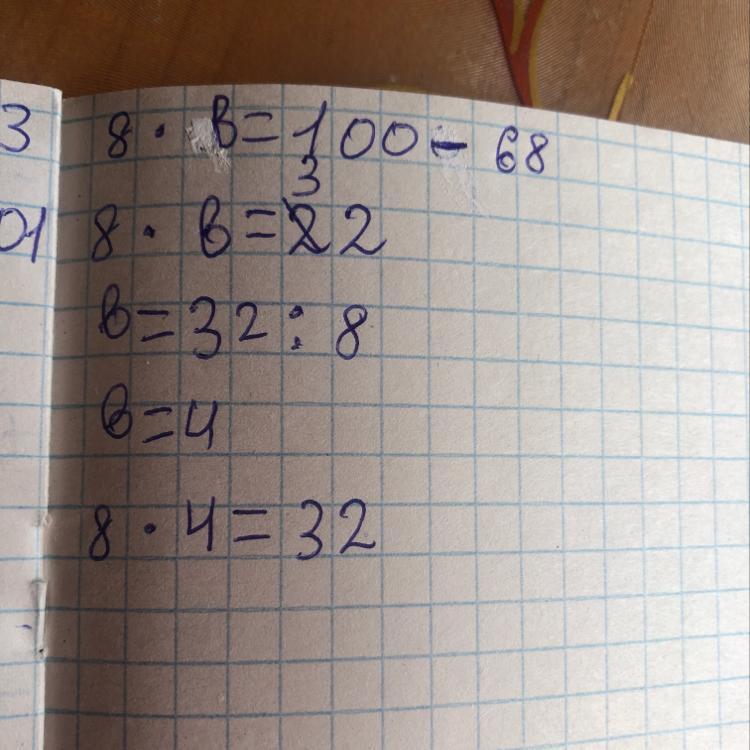 3
01
8 · в = 100 - 68
3
8 · в = 22
в = 32 : 8
в = 4
8 · 4 = 32